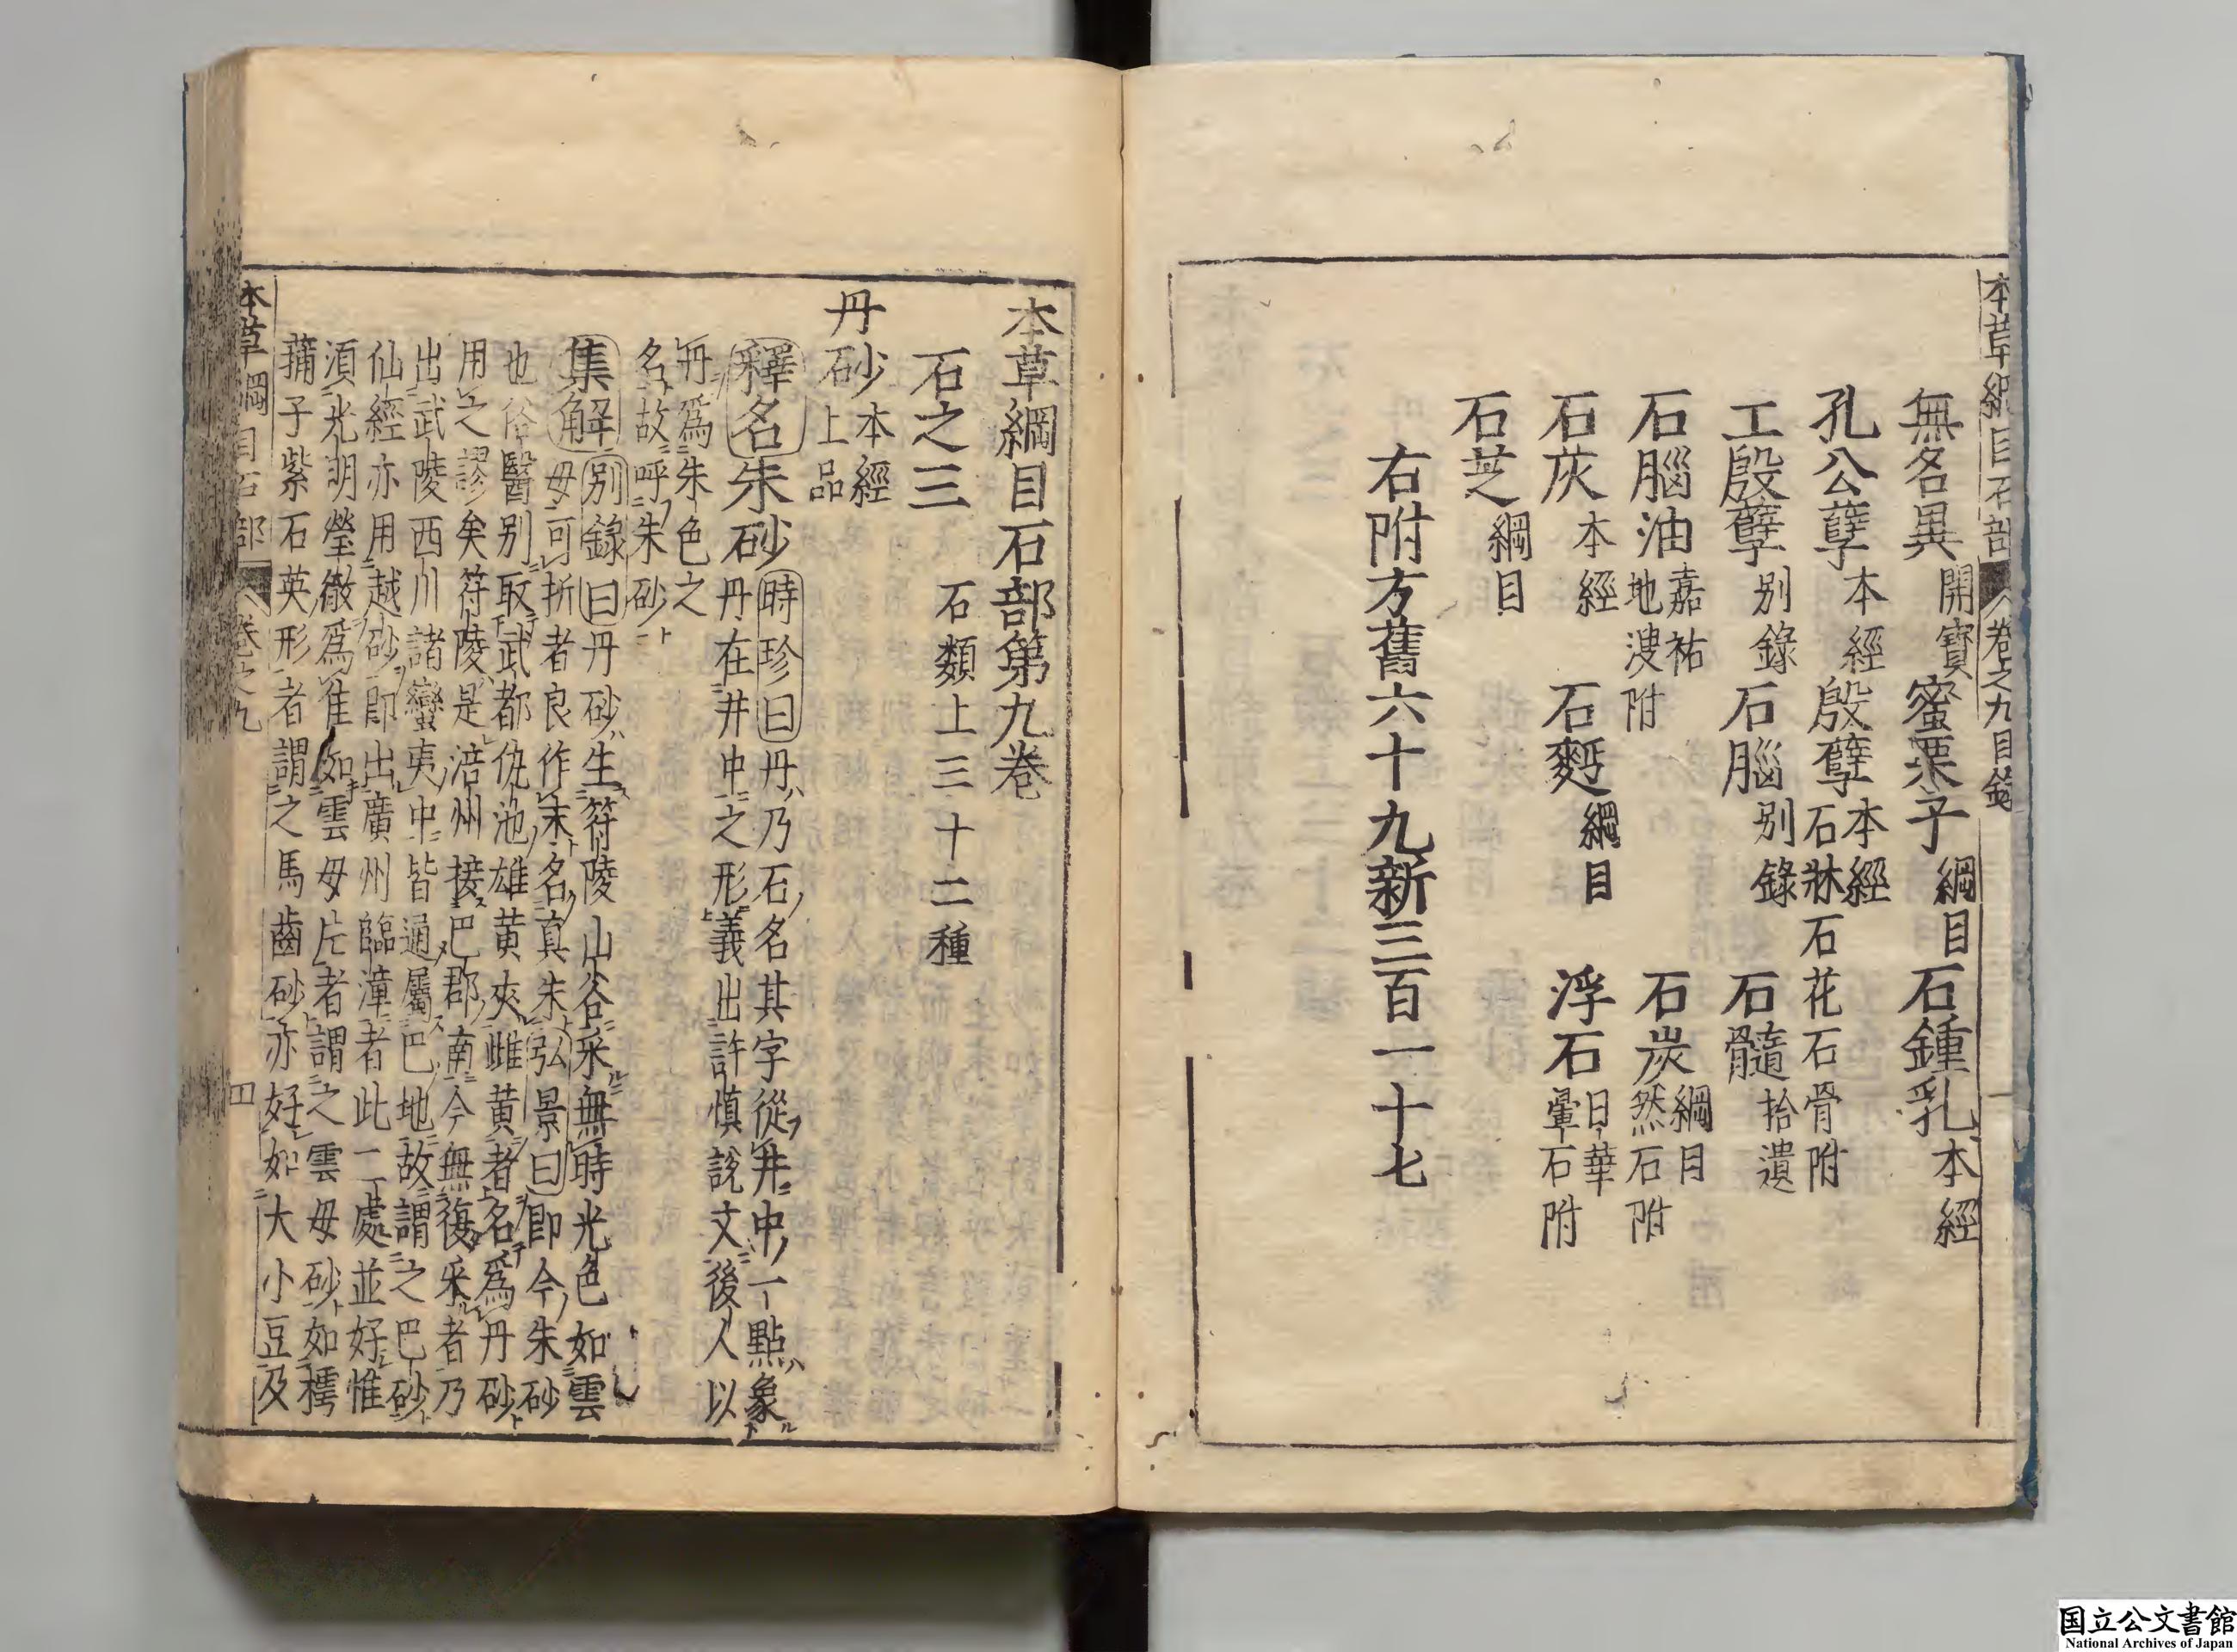 本草綱目石部 卷之九目錄
無名異開寶 蜜栗子綱目 石鍾乳本經
孔公孽本經 殷孽本經石牀石花石骨附
土殷孽别錄 石腦别錄 石髓拾遺
石腦油嘉祐地溲附 石炭綱目然石附
石灰本經 石麪綱目 浮石日華暈石附
石芝綱目
右附方舊六十九新三百一十七
本草綱目石部第九卷
石之三 石類上三十二種
丹砂本經上品
釋名朱砂時珍曰丹乃石名其字從井中一點象
丹在井中之形義出許慎說文後人以
丹爲朱色之
名故呼朱砂
集解别錄曰丹砂生符陵山谷采無時光色如雲
母可折者良作末名真朱弘景曰即今朱砂
也俗醫别取武都仇池雄黄夾雌黄者名爲丹砂
用之謬矣符陵是涪州接巴郡南今無復采者乃
出武陵西川諸蠻夷中皆通屬巴地故謂之巴砂
仙經亦用越砂即出廣州臨漳者此二處並好惟
須光明瑩徹爲佳如雲母片者謂之雲母砂如樗
蒱子紫石英形者謂之馬齒砂亦好如大小豆及
本草綱目石部 卷之九 四
国立公文書館
National Archives of Japan